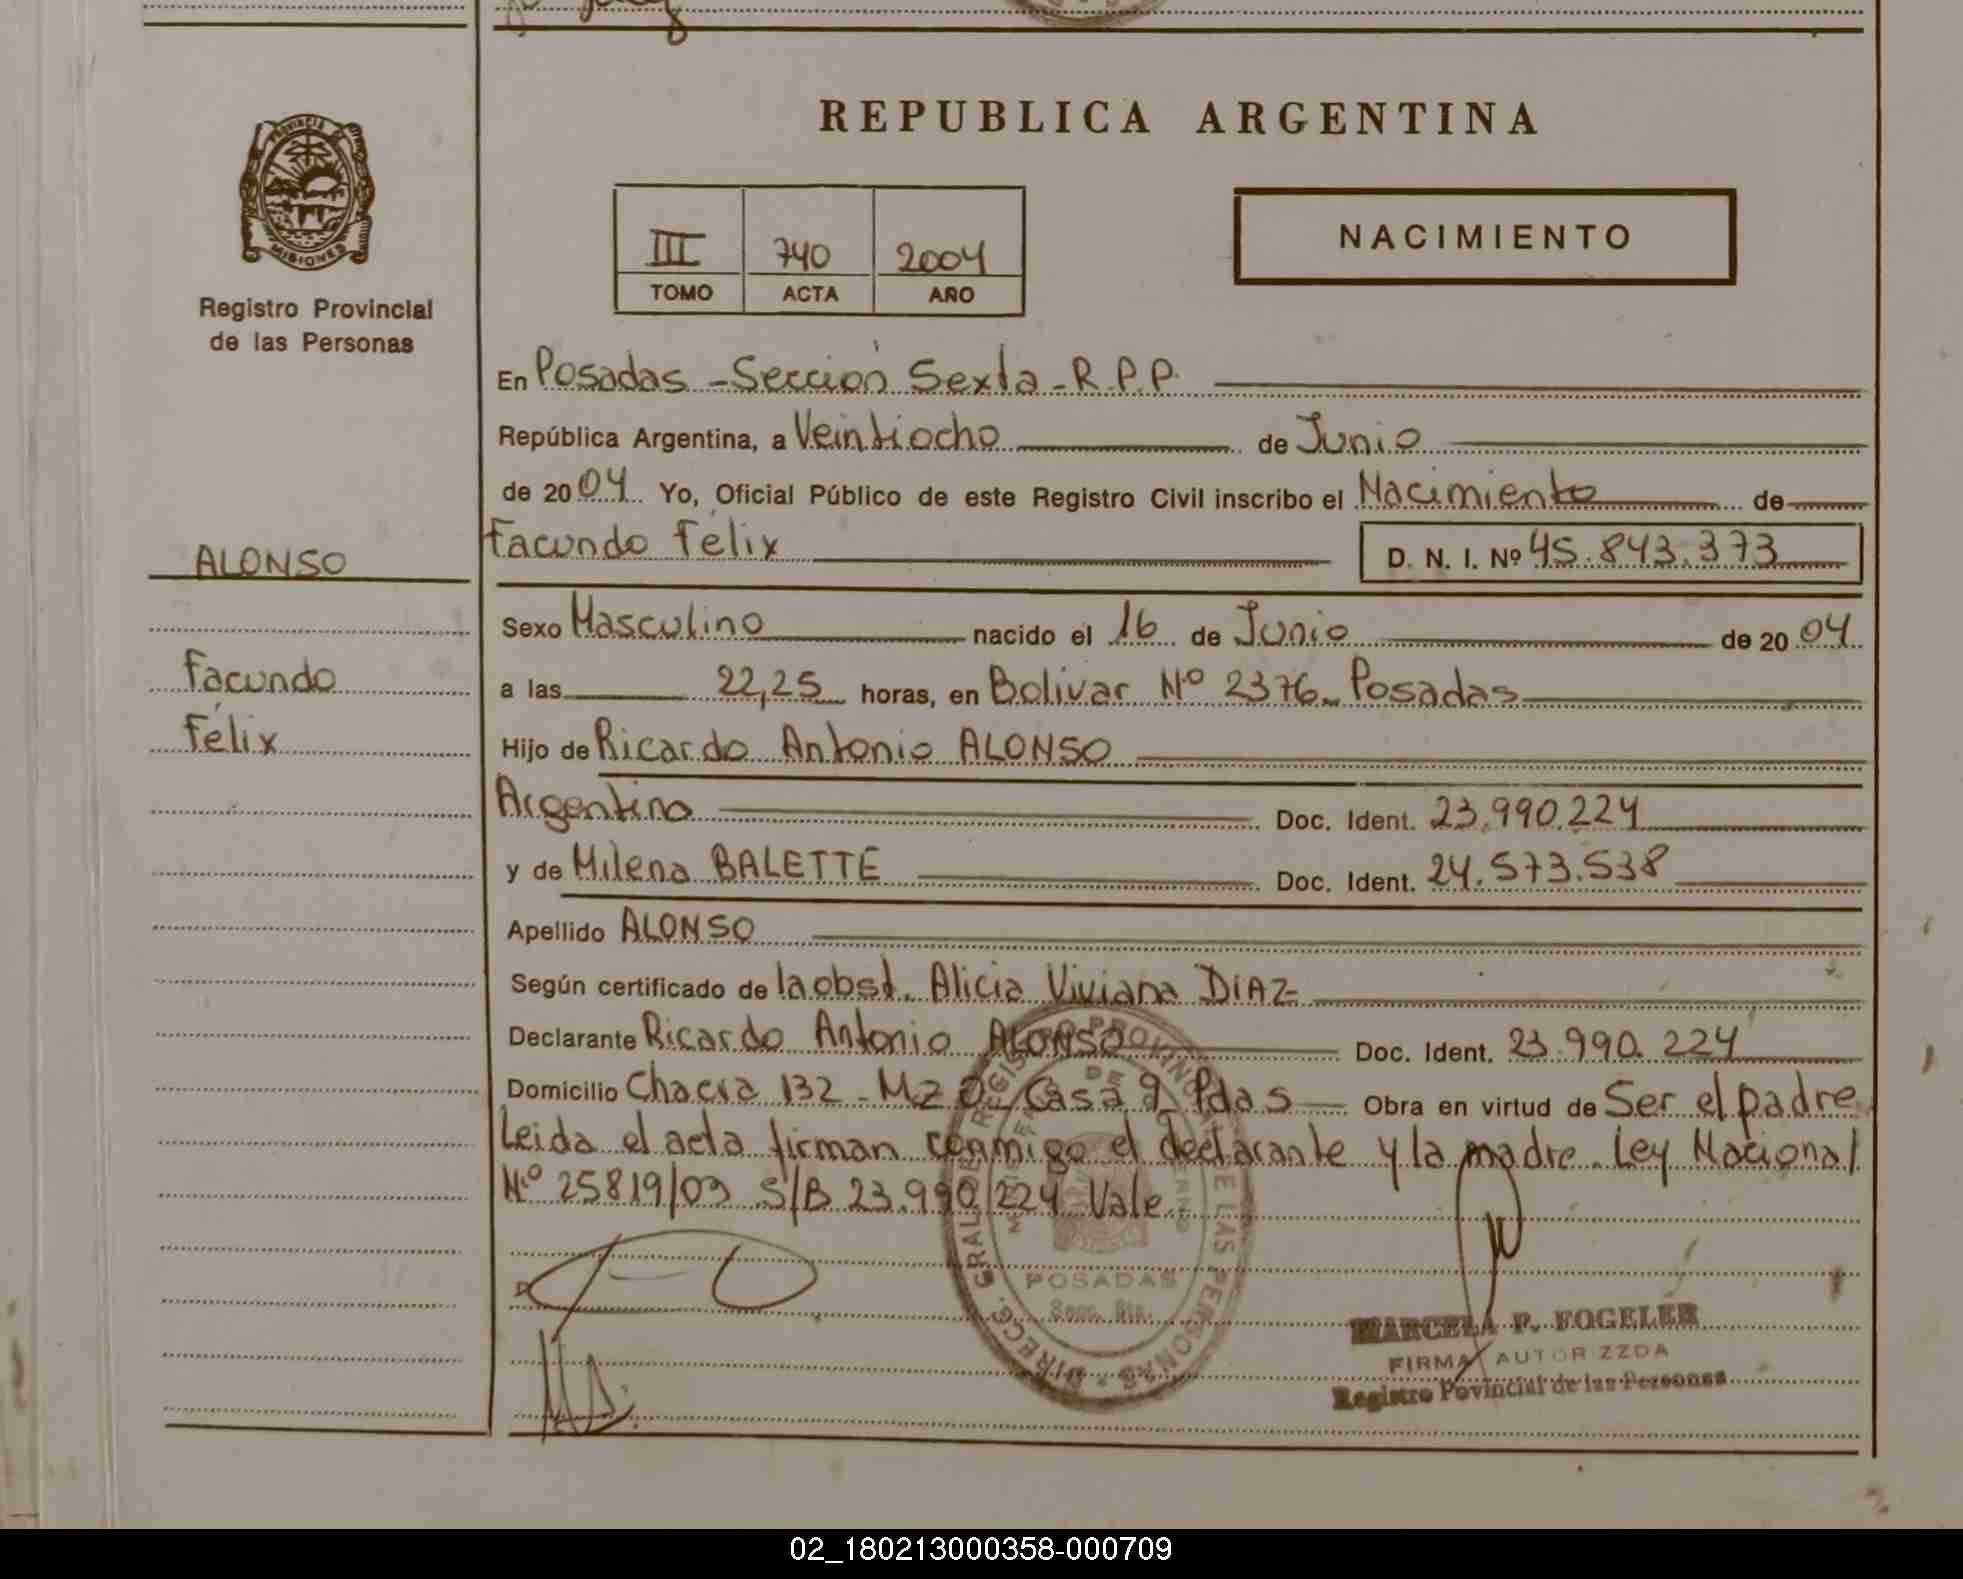 REPUBLICA ARGENTINA
PROVINCIA DE
MISIONES
Registro Provincial
de las Personas
III 740 2004
TOMO ACTA AÑO
NACIMIENTO
En Posadas - Sección Sexta - R.P.P.
República Argentina, a Veintiocho de Junio
de 2004 Yo, Oficial Público de este Registro Civil inscribo el Nacimiento de
Facundo Félix D. N. I. Nº 45.843.373
ALONSO
Facundo
Félix
Sexo Masculino nacido el 16 de Junio de 2004
a las 22,25 horas, en Bolivar Nº 2376. Posadas
Hijo de Ricardo Antonio ALONSO
Argentino Doc. Ident. 23.990.224
y de Milena BALETTE Doc. Ident. 24.573.538
Apellido ALONSO
Según certificado de la obst. Alicia Viviana DIAZ
Declarante Ricardo Antonio ALONSO Doc. Ident. 23.990.224
Domicilio Chacra 132 - Mz Casa 9 Pdas Obra en virtud de Ser el padre
Leida el acta firman conmigo el declarante y la madre. Ley Nacional
Nº 25819/03 S/B 23.990.224 Vale
DIRECG. GRAL. DE REGISTRO PROVINCIAL DE LAS PERSONAS
POSADAS
MARCELA P. FOGELER
FIRMA AUTORIZZDA
Registro Povincial de las Personas
02_180213000358-000709